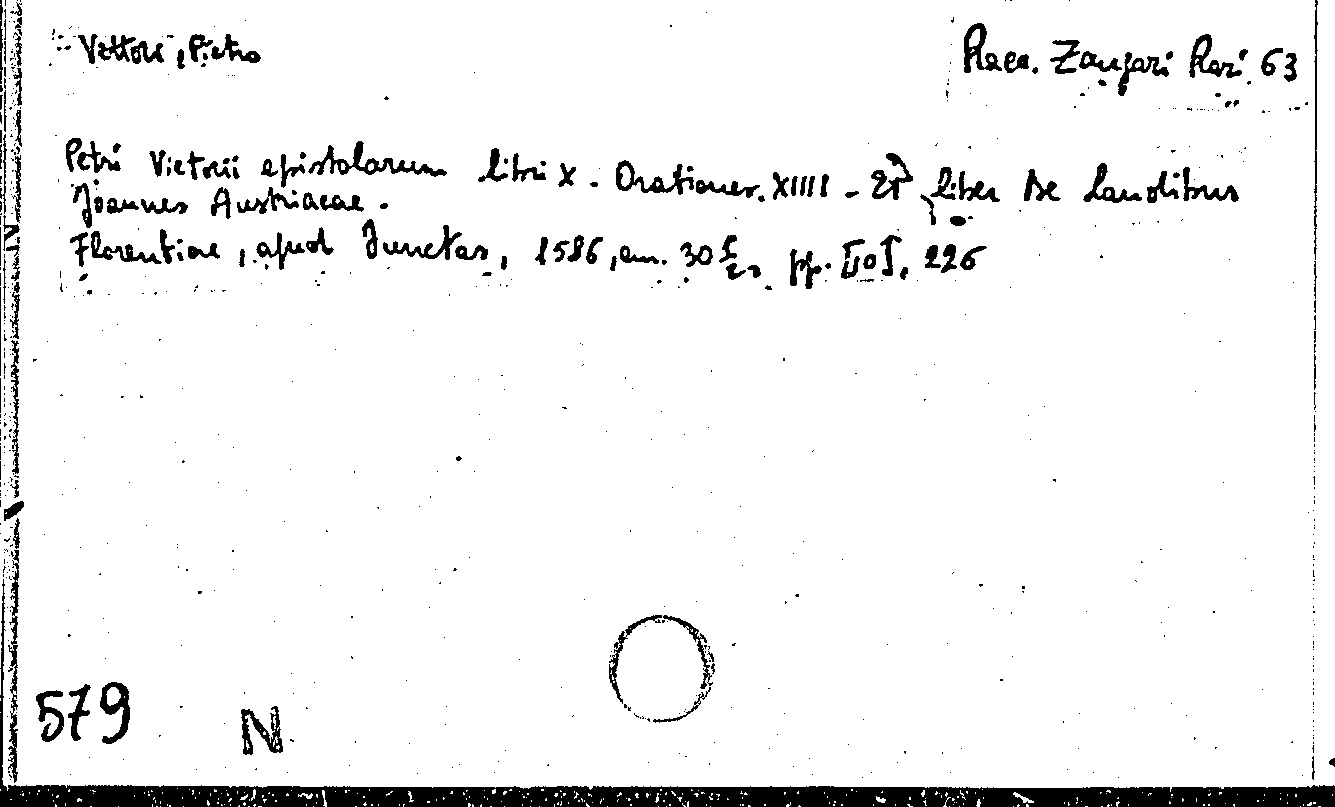 Vettori, Pietro
Racc. Zangari Rari 63
Petri Victorii epistolarum libri X. Orationes. XIIII - Et liber De Laudibus
Joannes Austriacae.
Florentiae, apud Junctas, 1586, cm. 30 pp. [10], 226
579
N